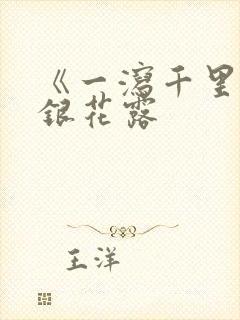 《一瀉千里
銀花露
王洋